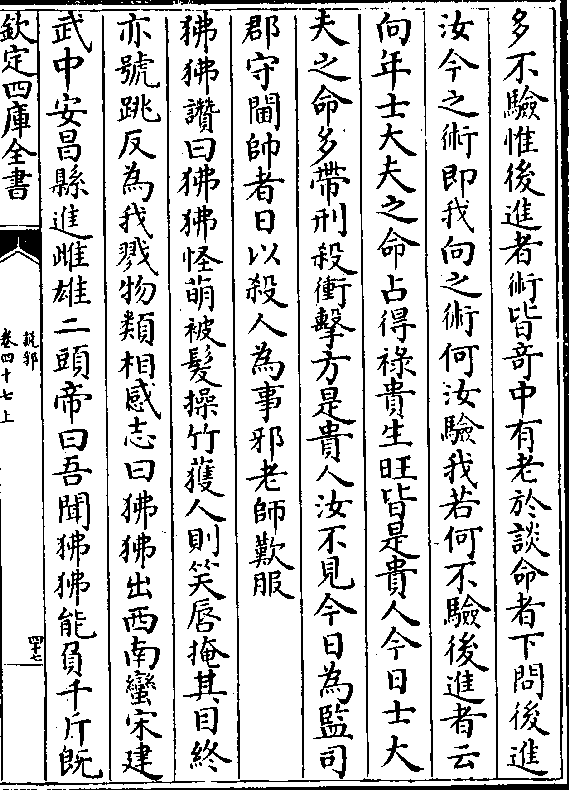 多不驗惟後進者術皆竒中有老於談命者下問後進
汝今之術即我向之術何汝驗我若何不驗後進者云
向年士大夫之命占得祿貴生旺皆是貴人今日士大
夫之命多帶刑殺衝擊方是貴人汝不見今日為監司
郡守閫帥者日以殺人為事邪老師歎服
狒狒讚曰狒狒怪萌被髪操竹獲人則笑唇掩其目終
亦號跳反為我戮物類相感志曰狒狒出西南蠻宋建
武中安昌縣進雌雄二頭帝曰吾聞狒狒能負千斤既
欽定四庫全書
說郛
卷四十七上
四十七